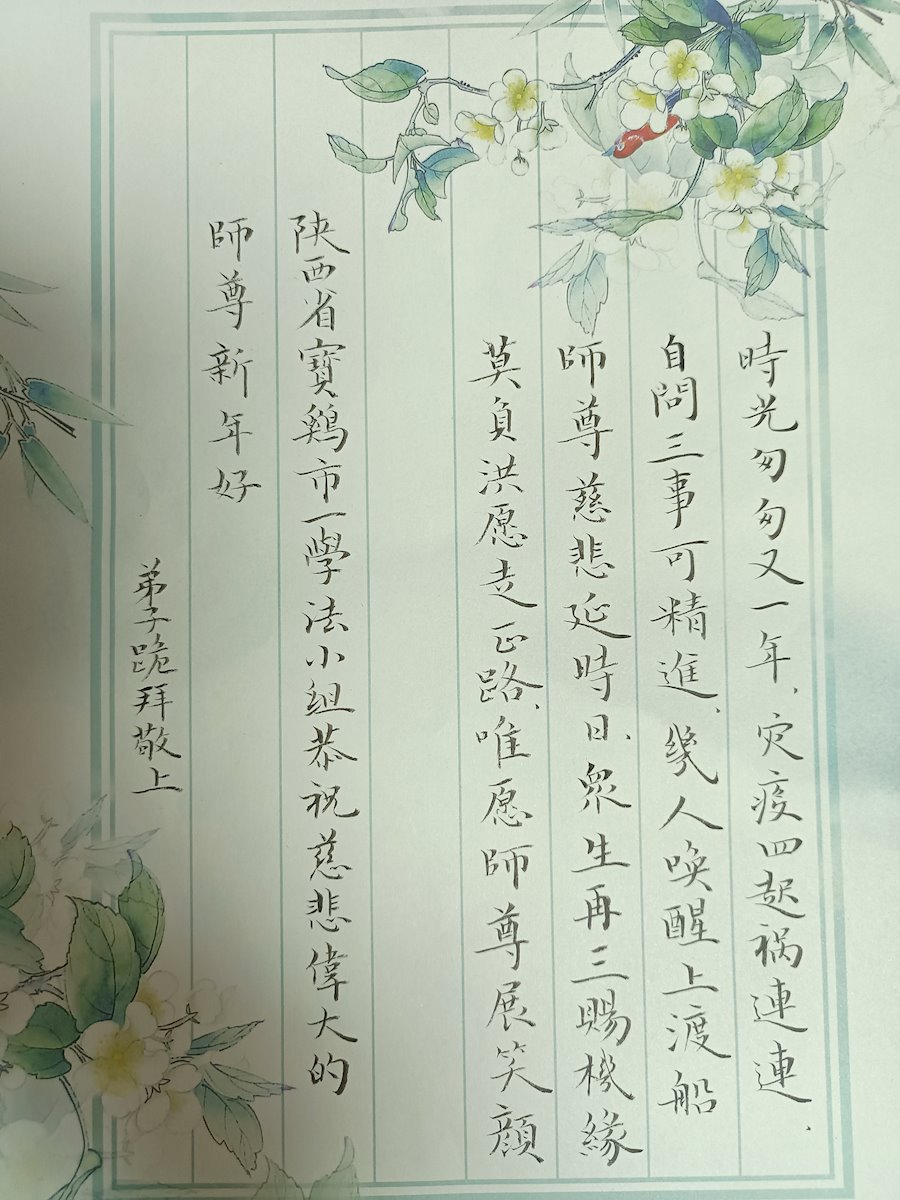 時光匆匆又一年、灾疫四起祸連連.
自問三事可精進、幾人唤醒上渡船
師尊慈悲延時日、眾生再三賜機緣
莫負洪愿走正路、唯愿師尊展笑顔
陕西省寶鷄市一學法小组恭祝慈悲偉大的
師尊新年好
弟子跪拜敬上